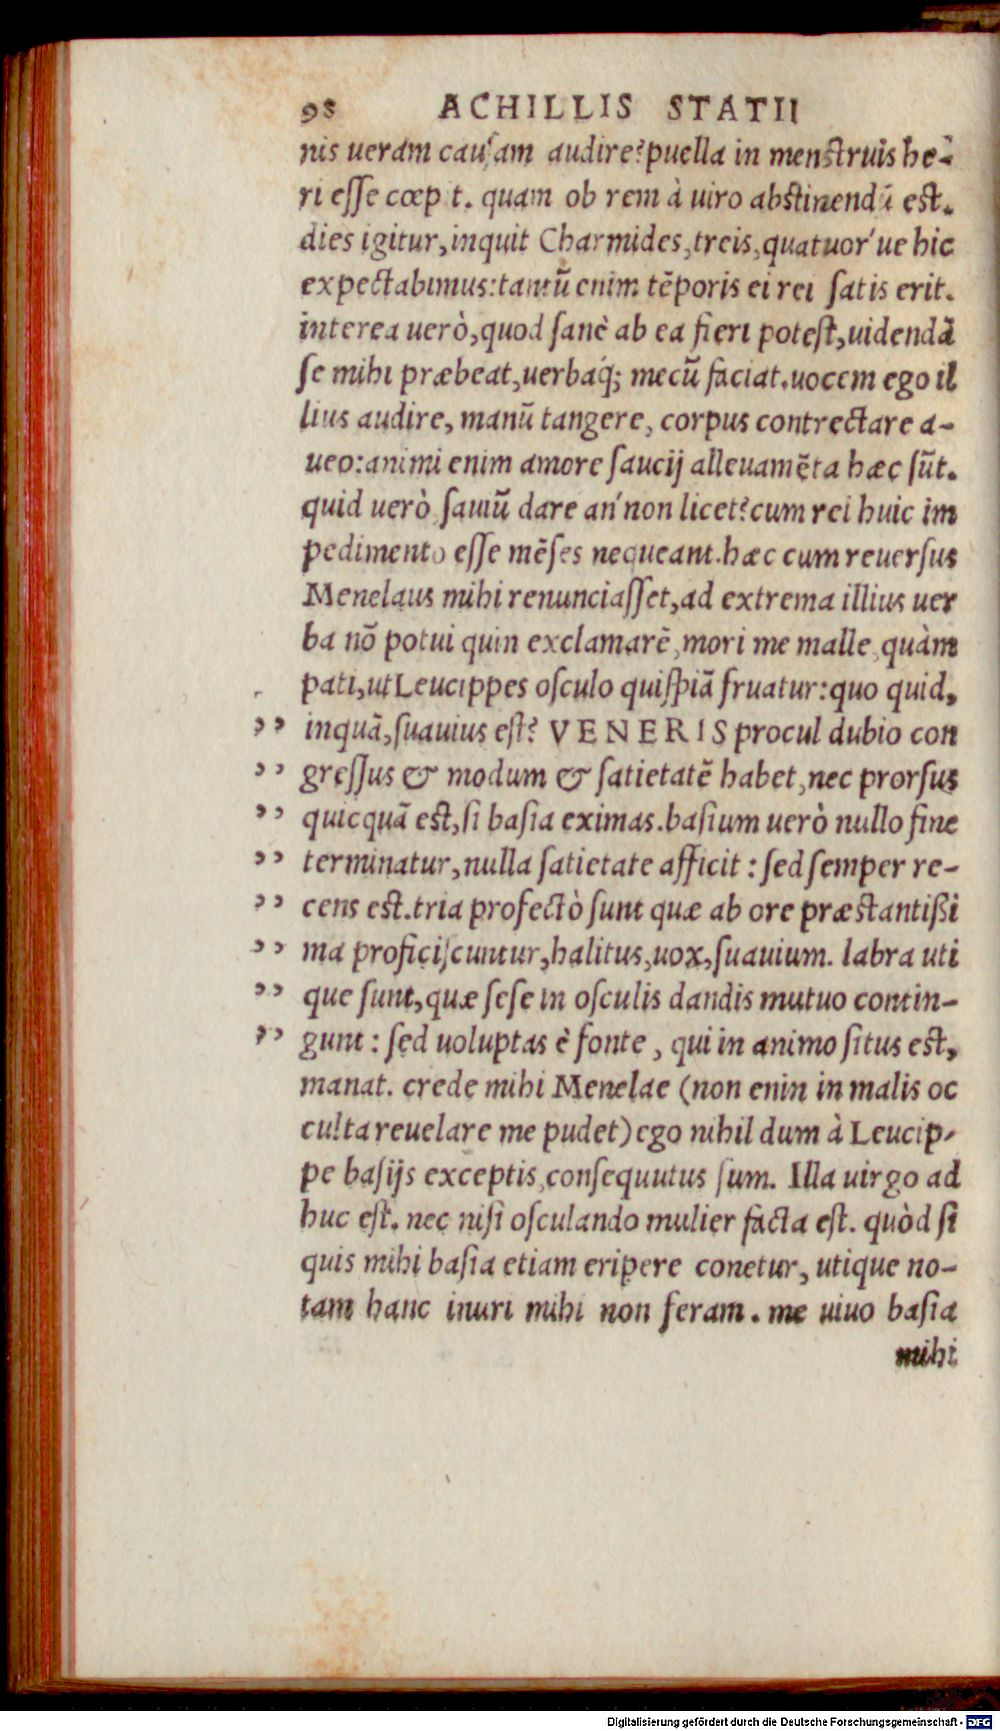 98 ACHILLIS STATII
nis ueram cauſam audire? puella in menſtruis he-
ri eſſe cœpit. quam ob rem à uiro abſtinendū eſt.
dies igitur, inquit Charmides, treis, quatuor'ue hic
expectabimus: tantū enim tēporis ei rei ſatis erit.
interea uerò, quod ſanè ab ea fieri poteſt, uidendā
ſe mihi præbeat, uerbaq́; mecū faciat. uocem ego il
lius audire, manū tangere, corpus contrectare a-
ueo: animi enim amore ſaucij alleuamēta hæc ſūt.
quid uerò ſauiū dare an' non licet? cum rei huic im
pedimento eſſe mēſes nequeant. hæc cum reuerſus
Menelaus mihi renunciaſſet, ad extrema illius uer
ba nō potui quin exclamarē, mori me malle, quàm
pati, ut Leucippes oſculo quiſpiā fruatur: quo quid,
,, inquā, ſuauius eſt? VENERIS procul dubio con
,, greſſus & modum & ſatietatē habet, nec prorſus
,, quicquā eſt, ſi baſia eximas. baſium uerò nullo fine
,, terminatur, nulla ſatietate afficit: ſed ſemper re-
,, cens eſt. tria profectò ſunt quæ ab ore præſtantißi
,, ma proficiſcuntur, halitus, uox, ſuauium. labra uti
,, que ſunt, quæ ſeſe in oſculis dandis mutuo contin-
,, gunt: ſed uoluptas è fonte, qui in animo ſitus eſt,
manat. crede mihi Menelae (non enin in malis oc
culta reuelare me pudet) ego nihil dum à Leucip-
pe baſijs exceptis, conſequutus ſum. Illa uirgo ad
huc eſt. nec niſi oſculando mulier facta eſt. quòd ſi
quis mihi baſia etiam eripere conetur, utique no-
tam hanc inuri mihi non feram. me uiuo baſia
mihi
Digitalisierung gefördert durch die Deutsche Forschungsgemeinschaft - DFG